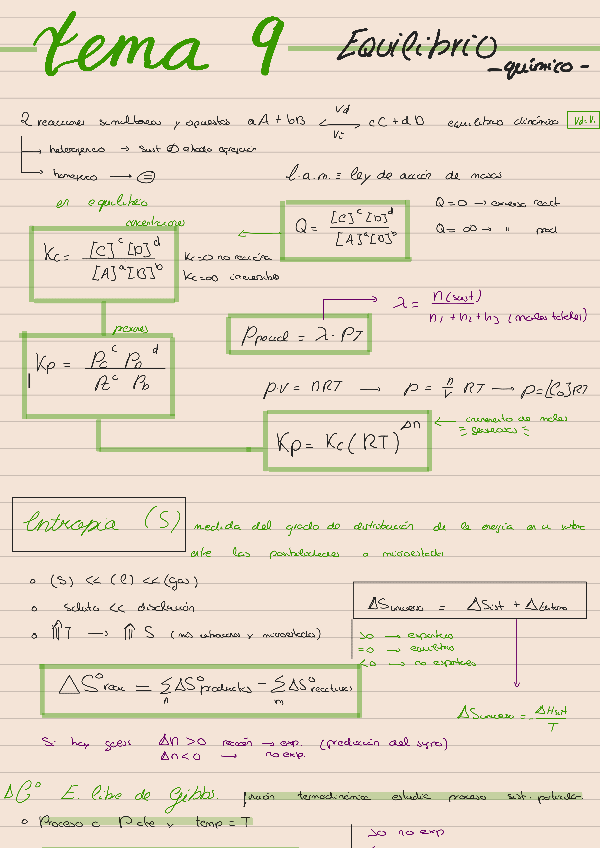 tema 9 Equilibrio
- químico -
2 reacciones simultáneas y opuestas aA + bB ⇄ cC + dD equilibrio dinámico Vd=Vi
Vd
Vi
→ heterogéneo → sust ≠ estado agregación
→ homogéneo → = l.a.m. = ley de acción de masas
en equilibrio
concentraciones
Kc = [C]^c [D]^d / [A]^a [B]^b
Kc=0 no reacción
Kc=∞ irreversible
Q = [C]^c [D]^d / [A]^a [B]^b
Q=0 → exceso react
Q=∞ → " prod
λ = n(sust) / n1 + n2 + n3 (moles totales)
Pparcial = λ · PT
presiones
Kp = Pc^c PD^d / Pa^c Pb
p·V = nRT → p = n/V RT → p=[C]RT
Kp = Kc (RT)^Δn ← incremento de moles
= gaseosos =
Entropía (S) medida del grado de distribución de la energía en un sistema
entre las posibilidades o microestados
o (S) << (l) << (gas)
o soluto << disolución
o ⇑T → ⇑S (más microestados)
ΔSuniverso = ΔSist + ΔEntorno
>0 → espontáneo
=0 → equilibrio
<0 → no espontáneo
ΔS°reac = Σ ΔS°productos - Σ ΔS°reactivos
n m
ΔSuniverso = -ΔHsist/T
Si hay gases Δn >0 reacción → esp. (predicción del signo)
Δn<0 → no esp.
ΔG° E. libre de Gibbs. función termodinámica estudia proceso sist. particular.
o Proceso a P cte y temp = T
>0 no esp